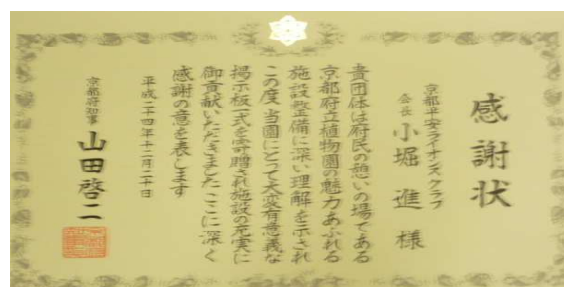 感謝状
京都平安ライオンズクラブ
会長 小堀進様
貴団体は府民の憩いの場である
京都府立植物園の魅力あふれる
施設整備に深い理解を示され
この度当園にとって大変有意義な
掲示板一式を寄贈され施設の充実に
御貢献いただきましたここに深く
感謝の意を表します
平成二十四年十二月二十日
京都府知事 山田啓二